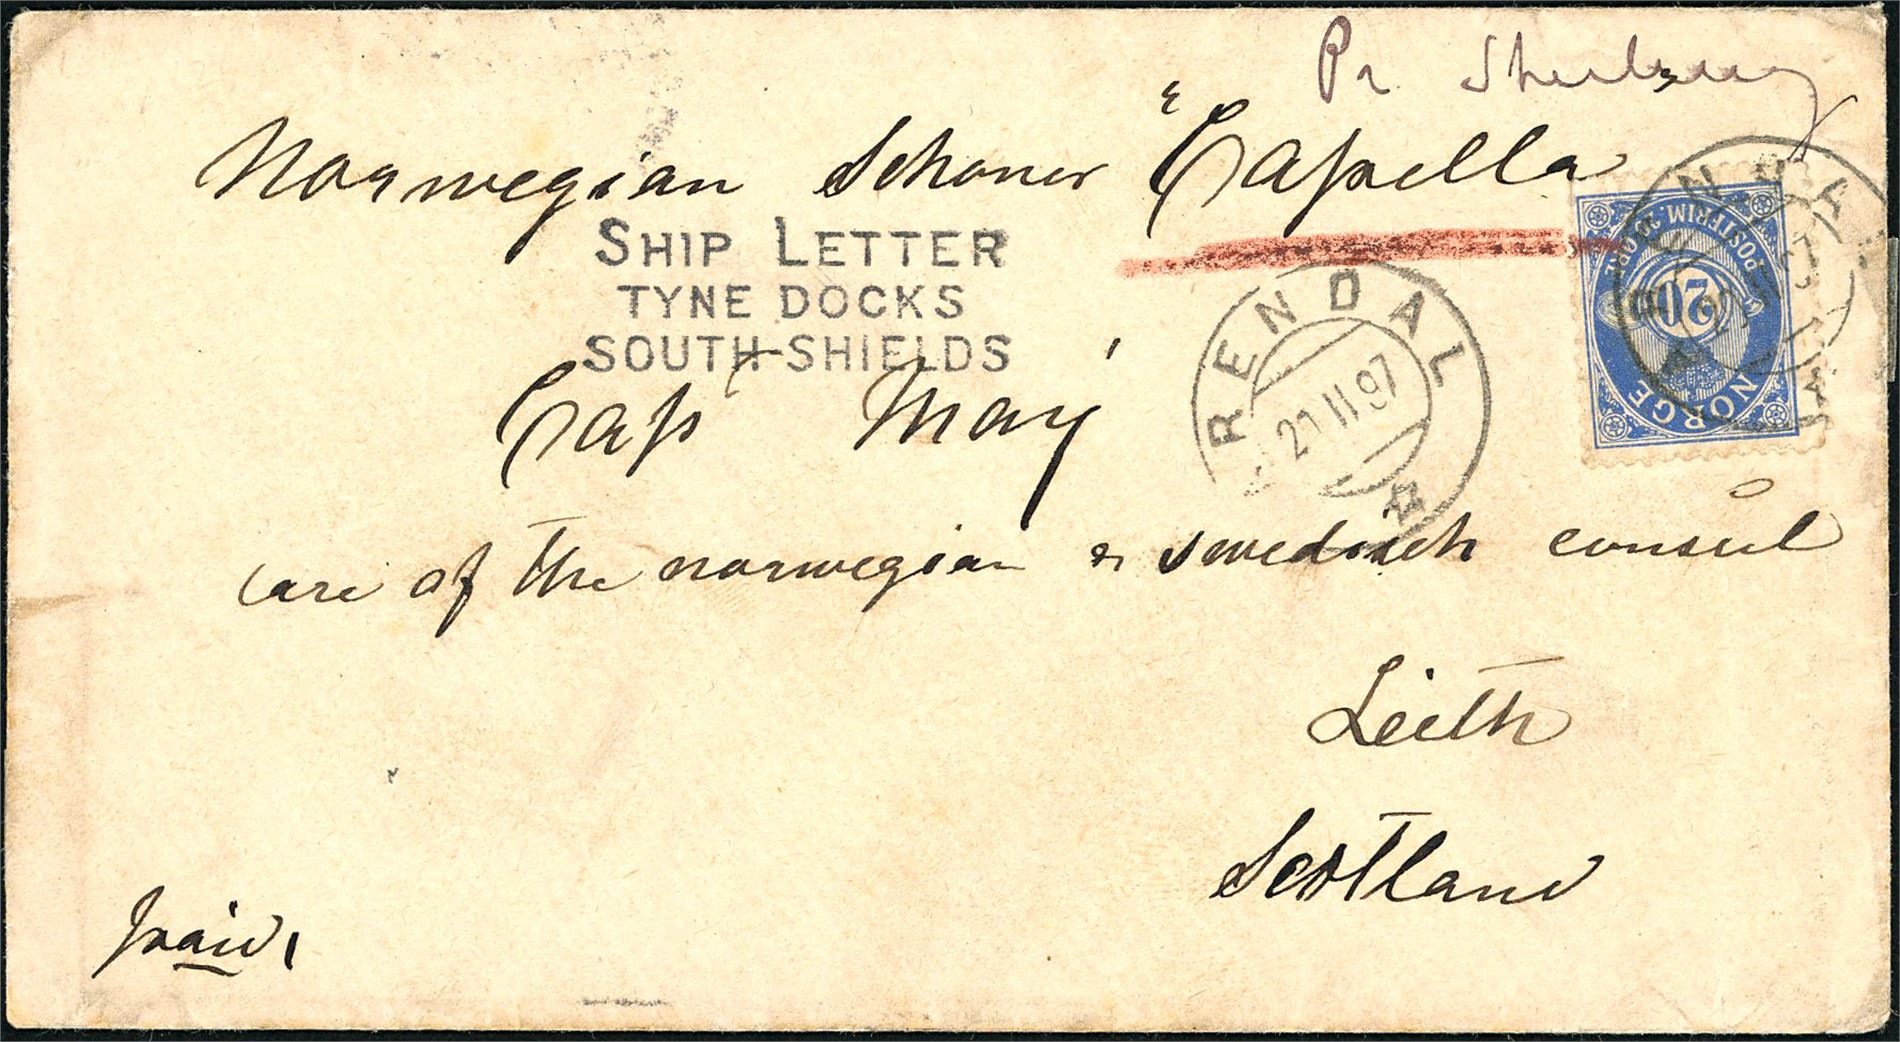 Pr
Norwegian Schoner "Capella
SHIP LETTER
TYNE DOCKS
SOUTH-SHIELDS
Cap May
ARENDAL
21 II 97
POSTFRIM. 20 ØRE
20
NORGE
care of the norwegian & swedish consul
Leith
Scotland
paid,